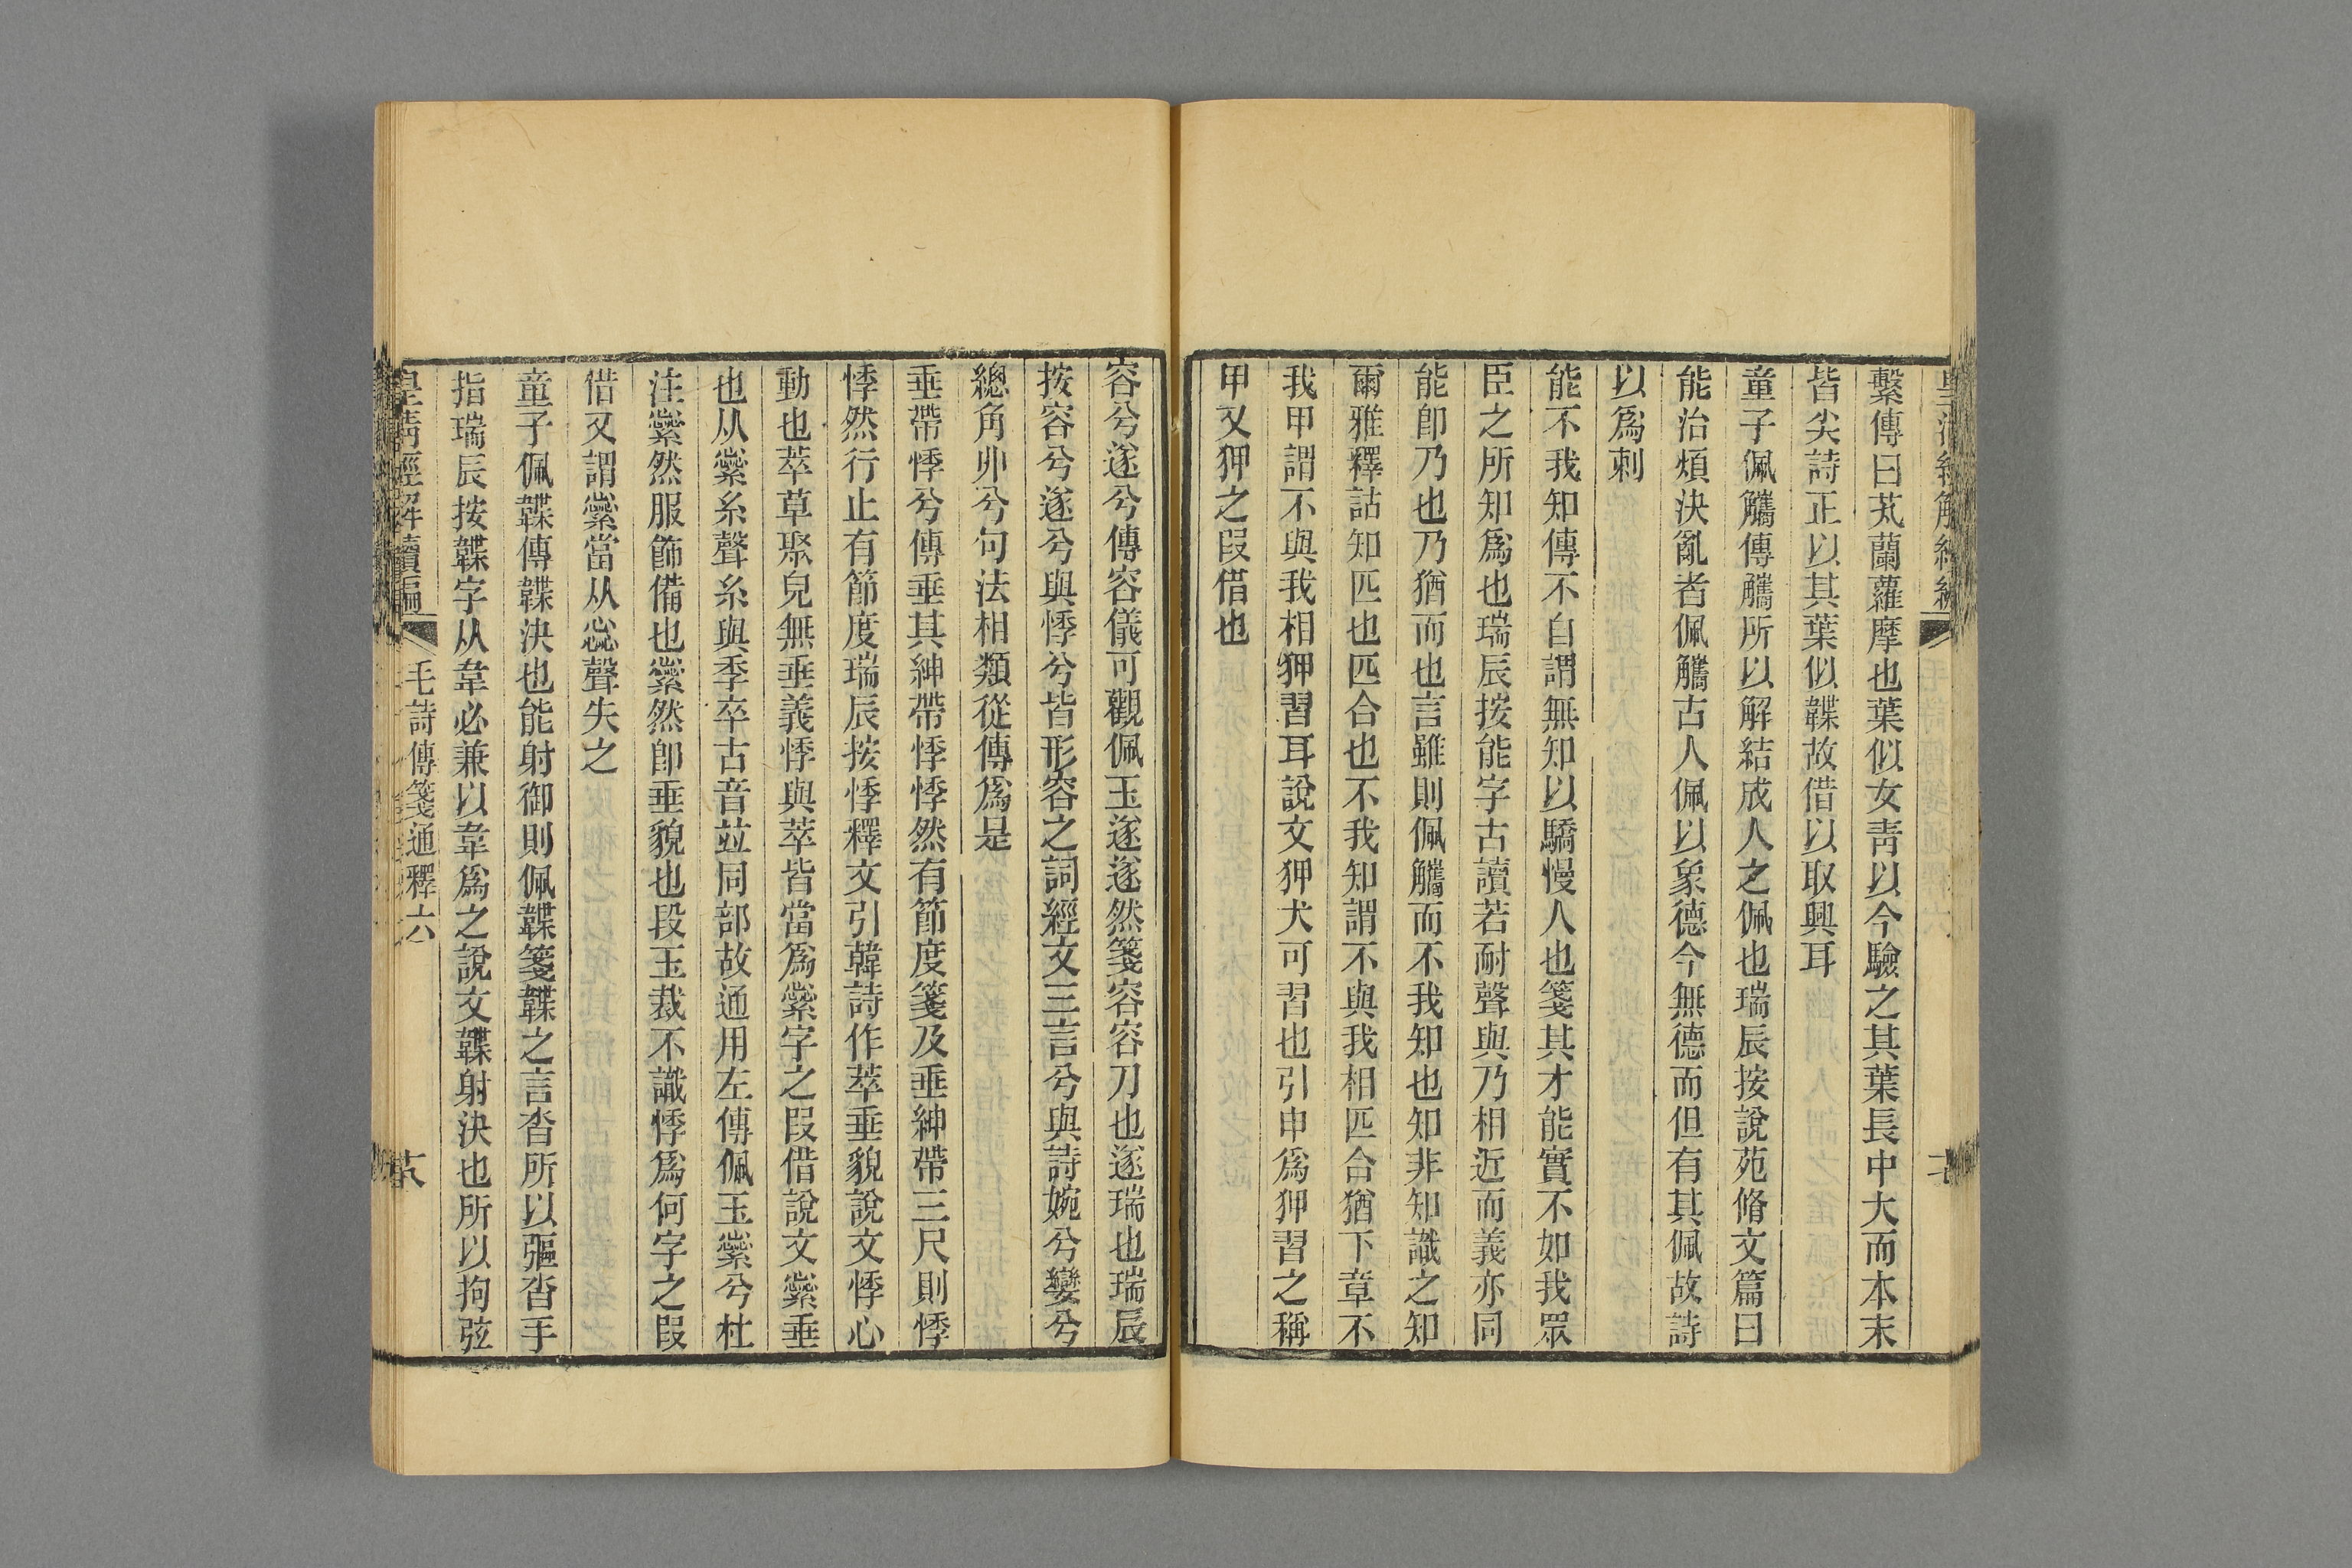 繫傳曰芄蘭蘿摩也葉似女靑以今驗之其葉長中大而本末
皆尖詩正以其葉似韘故借以取興耳
童子佩觿傳觿所以解結成人之佩也瑞辰按說苑脩文篇曰
能治煩決亂者佩觿古人佩以象德今無德而但有其佩故詩
以爲刺
能不我知傳不自謂無知以驕慢人也箋其才能實不如我眾
臣之所知爲也瑞辰按能字古讀若耐聲與乃相近而義亦同
能卽乃也乃猶而也言雖則佩觿而不我知也知非知識之知
爾雅釋詁知匹也匹合也不我知謂不與我相匹合猶下章不
我甲謂不與我相狎習耳說文狎犬可習也引申爲狎習之稱
甲又狎之叚借也
容兮遂兮傳容儀可觀佩玉遂遂然箋容容刀也遂瑞也瑞辰
按容兮遂兮與悸兮皆形容之詞經文三言兮與詩婉兮孌兮
總角丱兮句法相類從傳爲是
垂帶悸兮傳垂其紳帶悸悸然有節度箋及垂紳帶三尺則悸
悸然行止有節度瑞辰按悸釋文引韓詩作萃垂貌說文悸心
動也萃草聚皃無垂義悸與萃皆當爲縈字之叚借說文縈垂
也从縈糸聲糸與季卒古音竝同部故通用左傳佩玉縈兮杜
注縈然服飾備也縈然卽垂貌也段玉裁不識悸爲何字之叚
借又謂縈當从惢聲失之
童子佩韘傳韘決也能射御則佩韘箋韘之言沓所以彄沓手
指瑞辰按韘字从韋必兼以韋爲之說文韘射決也所以拘弦
皇淸經解續編
毛詩傳箋通釋六